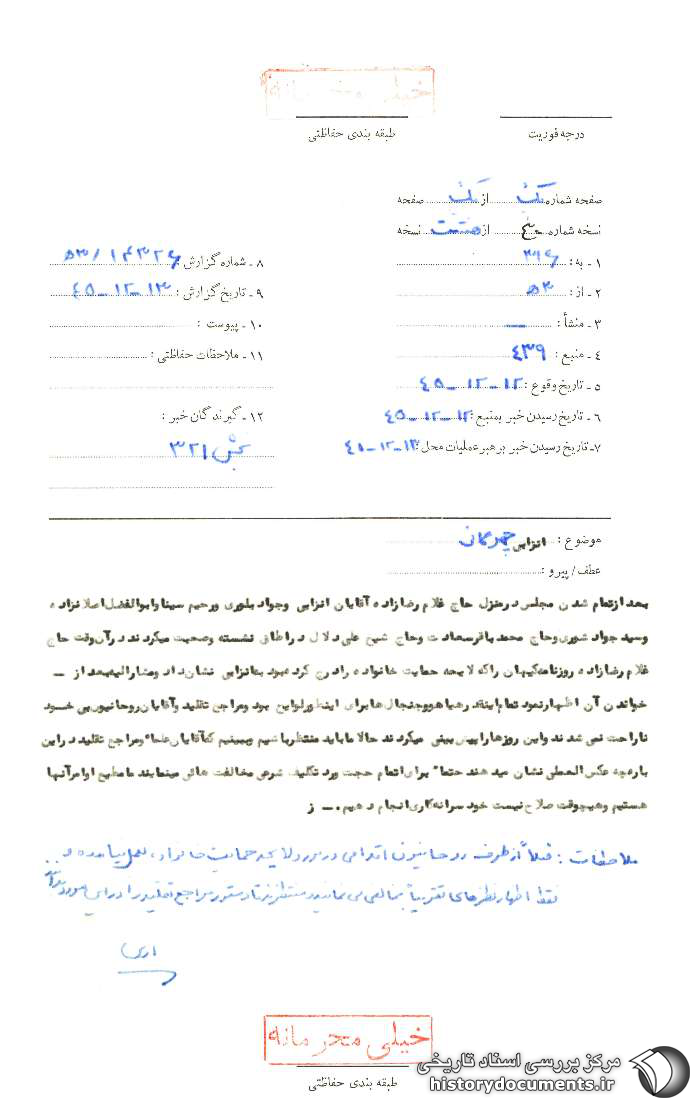 خیلی محرمانه
درجه فوریت
طبقه بندی حفاظتی
صفحه شماره یک از یک صفحه
نسخه شماره از هشت نسخه
۱ ـ به : ۳۱۶
۲ ـ از : ۵۳
۳ ـ منشأ : ـــ
۴ ـ منبع : ۴۳۹
۵ ـ تاریخ وقوع : ۱۲-۱۲-۴۵
۶ ـ تاریخ رسیدن خبر بمنبع : ۱۲-۱۲-۴۵
۷ ـ تاریخ رسیدن خبر برهبر عملیات محل : ۱۳-۱۲-۴۵
۸ ـ شماره گزارش :
۹ ـ تاریخ گزارش : ۱۳-۱۲-۴۵
۱۰ ـ پیوست :
۱۱ ـ ملاحظات حفاظتی :
۱۲ ـ گیرندگان خبر :
بخش ۳۲۱
موضوع : انزابی چهرگانی
عطف / پیرو :
بعد از تمام شدن مجلس در منزل حاج غلام رضا زاده آقایان انزابی وجواد بلوری ورحیم سینا وابوالفضل اصلانزاده
وسید جواد شوری وحاج محمد باقر سعادت وحاج شیخ علی دلال در اطاق نشسته وصحبت میکردند در آن وقت حاج
غلام رضا زاده روزنامه کیهان را که لایحه حمایت خانواده را درج کرده بود به انزابی نشان داد ومشارالیه بعد از ـ
خواندن آن اظهار نمود تمام اینقدر هیاهو وجنجال ها برای اینطور لوایح بود ومراجع تقلید وآقایان روحانیون بی خود
ناراحت نمی شدند واین روزها را پیش بینی میکردند حالا ما باید منتظر باشیم وببینیم که آقایان علما ومراجع تقلید در این
باره چه عکس العملی نشان میدهند حتما برای اتمام حجت ورد تکلیف شرعی مخالفت هائی مینمایند ما مطیع اوامر آنها
هستیم وهیچوقت صلاح نیست خود سرانه کاری انجام دهیم . ـ ز
ملاحظات : قبلاً از طرف روحانیون اقدامی در مورد لایحه حمایت خانواده بعمل نیامده و
فقط اظهار نظرهای تقریباً مخالفی می نمایند و منتظرند تا دستور مراجع تقلید را در این مورد بدانند
خیلی محرمانه
طبقه بندی حفاظتی
مرکز بررسی اسناد تاریخی
historydocuments.ir